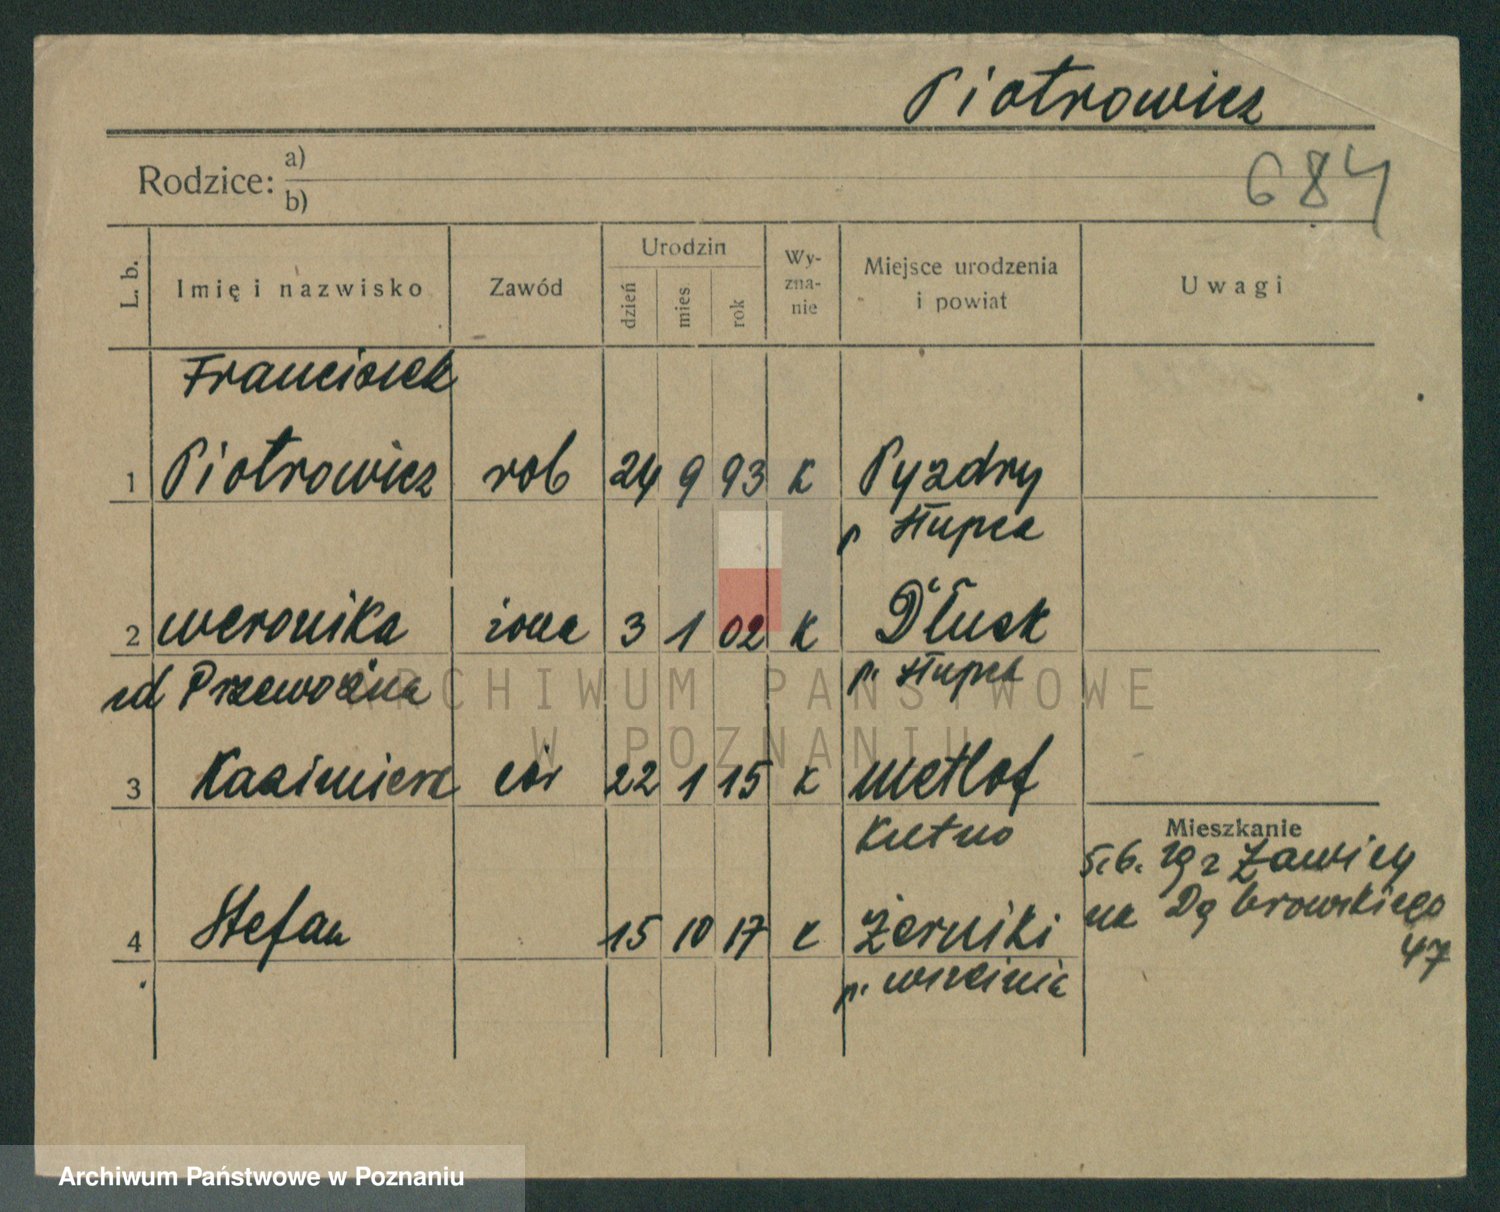 Piotrowicz
684
Rodzice: a)
b)
L. b. Imię i nazwisko Zawód Urodzin dzień mies rok Wy-zna-nie Miejsce urodzenia i powiat Uwagi
Franciszek
1 Piotrowicz rob 24 9 93 k Pyzdry
p Słupca
2 Weronika żona 3 1 02 k Dłusk
zd Przewoźna p. Słupca
3 Kazimierz 22 1 15 k
Kutno
4 Stefan 15 10 17 k Żerniki
p. Września
Mieszkanie
5.6. 19 z Żawicy
na Dąbrowskiego
47
ARCHIWUM PAŃSTWOWE
W POZNANIU
Archiwum Państwowe w Poznaniu